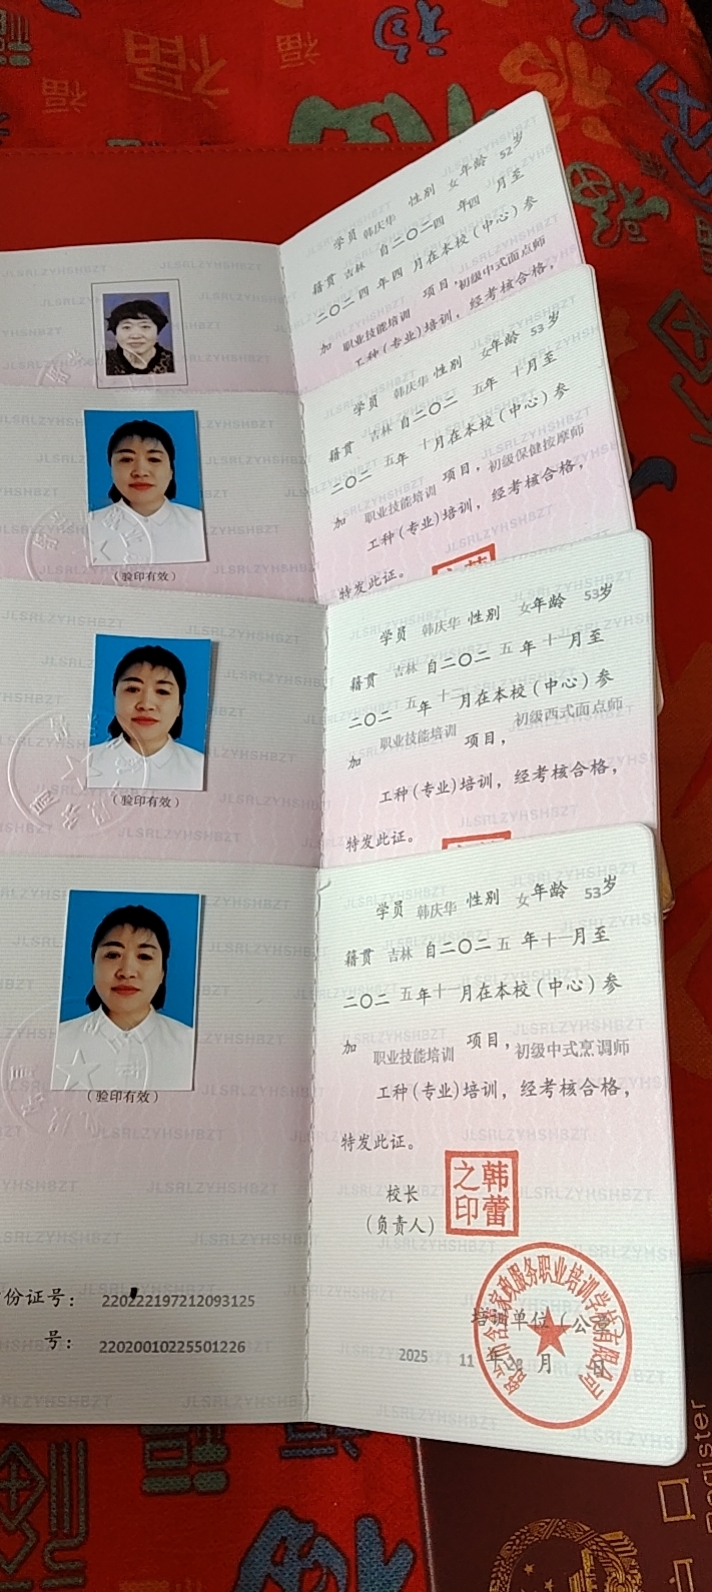 学员 韩庆华 性别 女 年龄 52岁
籍贯 吉林 自二〇二四 年四 月至
二〇二四 年四 月在本校（中心）参
加 职业技能培训 项目，初级中式面点师
工种（专业）培训，经考核合格，
学员 韩庆华 性别 女 年龄 53岁
籍贯 吉林 自二〇二 五年 十月至
二〇二 五年 十月在本校（中心）参
加 职业技能培训 项目，初级保健按摩师
工种（专业）培训，经考核合格，
特发此证。
（验印有效）
学员 韩庆华 性别 女 年龄 53岁
籍贯 吉林 自二〇二 五 年 十一月至
二〇二 五年 十二月在本校（中心）参
加 职业技能培训 项目，初级西式面点师
工种（专业）培训，经考核合格，
特发此证。
（验印有效）
学员 韩庆华 性别 女 年龄 53岁
籍贯 吉林 自二〇二 五 年十一月至
二〇二 五年十一月在本校（中心）参
加 职业技能培训 项目，初级中式烹调师
工种（专业）培训，经考核合格，
特发此证。
（验印有效）
校长
（负责人）
韩蕾之印
份证号： 220222197212093125
号： 22020010225501226
培训单位（公章）
2025 年 11 月 28 日
家政服务职业培训学校有限公司
JLSRLZYHSHBZT
Register